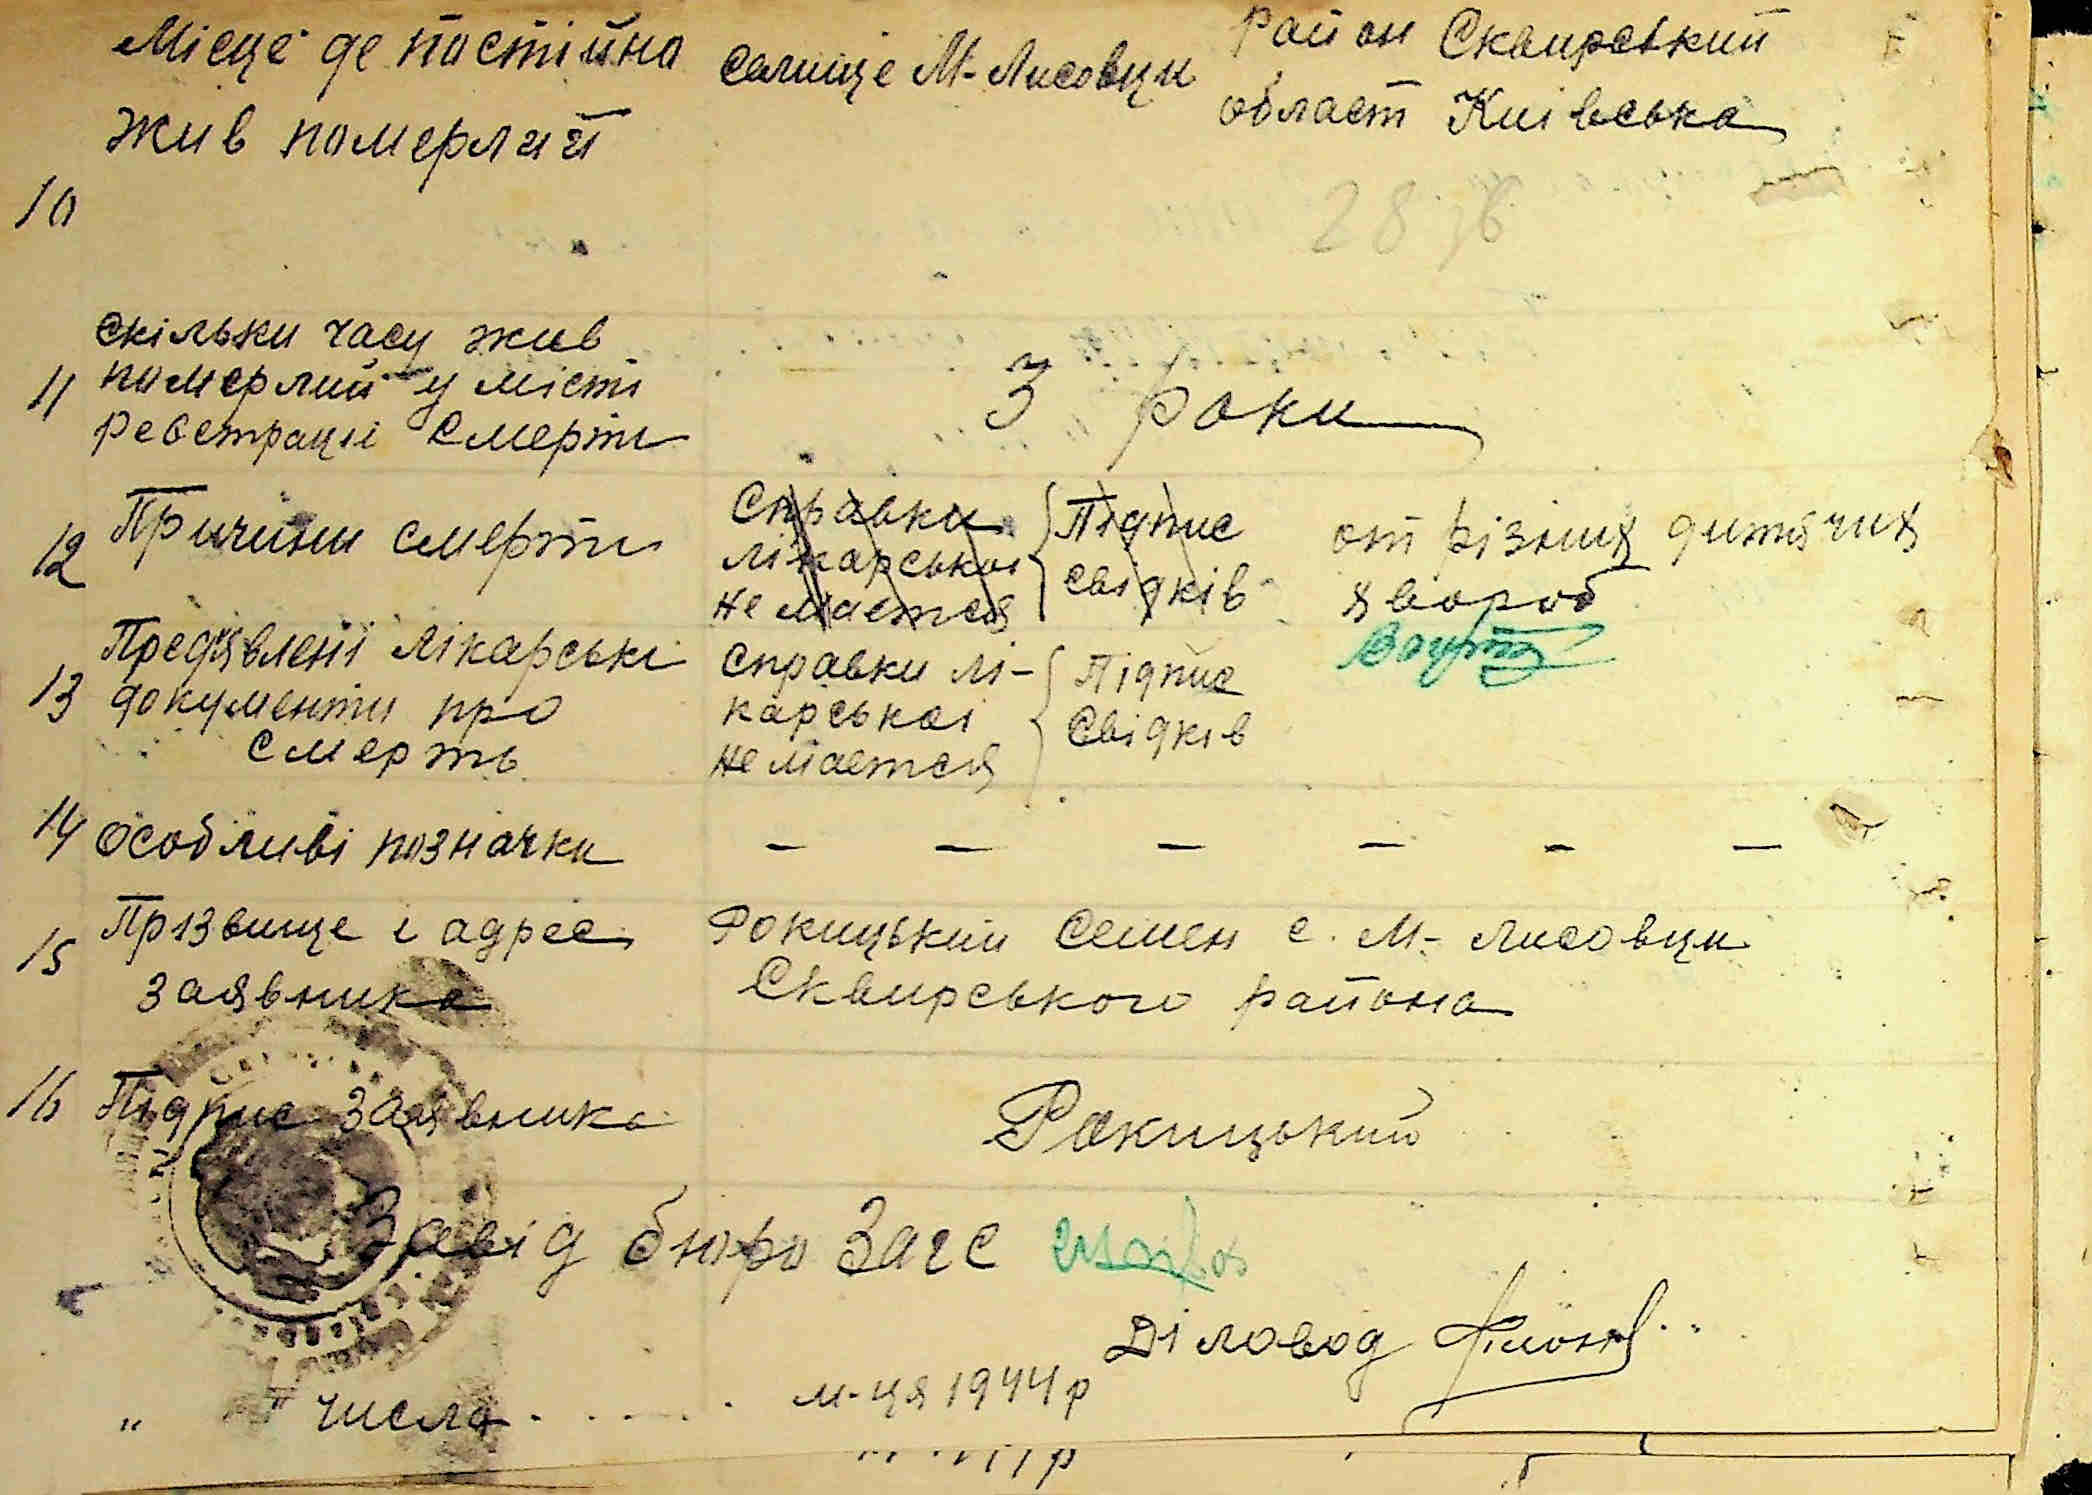 Місце де постійно
жив померлий
селище М-Лисовци
район Сквирський
област Київська
10
28
скільки часу жив
11 померлий у місті
ревстрації смерти
3 роки
12 Причини смерти
Справки
лікарської
не мается
Підпис
свідків
от різних дитячих
хвороб
13 Предявлені лікарські
документи про
смерть
справки лі-
карської
не мается
Підпис
свідків
14 особливі позначки
– – – – – –
15 Прізвище і адрес
заявника
Рокицький Семен с. М-Лисовци
Сквирського района
16 Підпис заявника
Рокицький
Завід бюро Загс
Діловод
" " числа . . . . . м-ця 1944 р